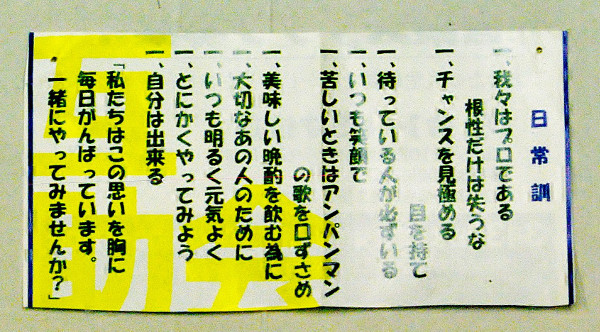 日常訓
一、我々はプロである
根性だけは失うな
一、チャンスを見極める
目を持て
一、待っている人が必ずいる
一、いつも笑顔で
一、苦しいときはアンパンマン
の歌を口ずさめ
一、美味しい晩酌を飲む為に
一、大切なあの人のために
一、いつも明るく元気よく
一、とにかくやってみよう
一、自分は出来る
「私たちはこの思いを胸に
毎日がんばっています。
一緒にやってみませんか?」